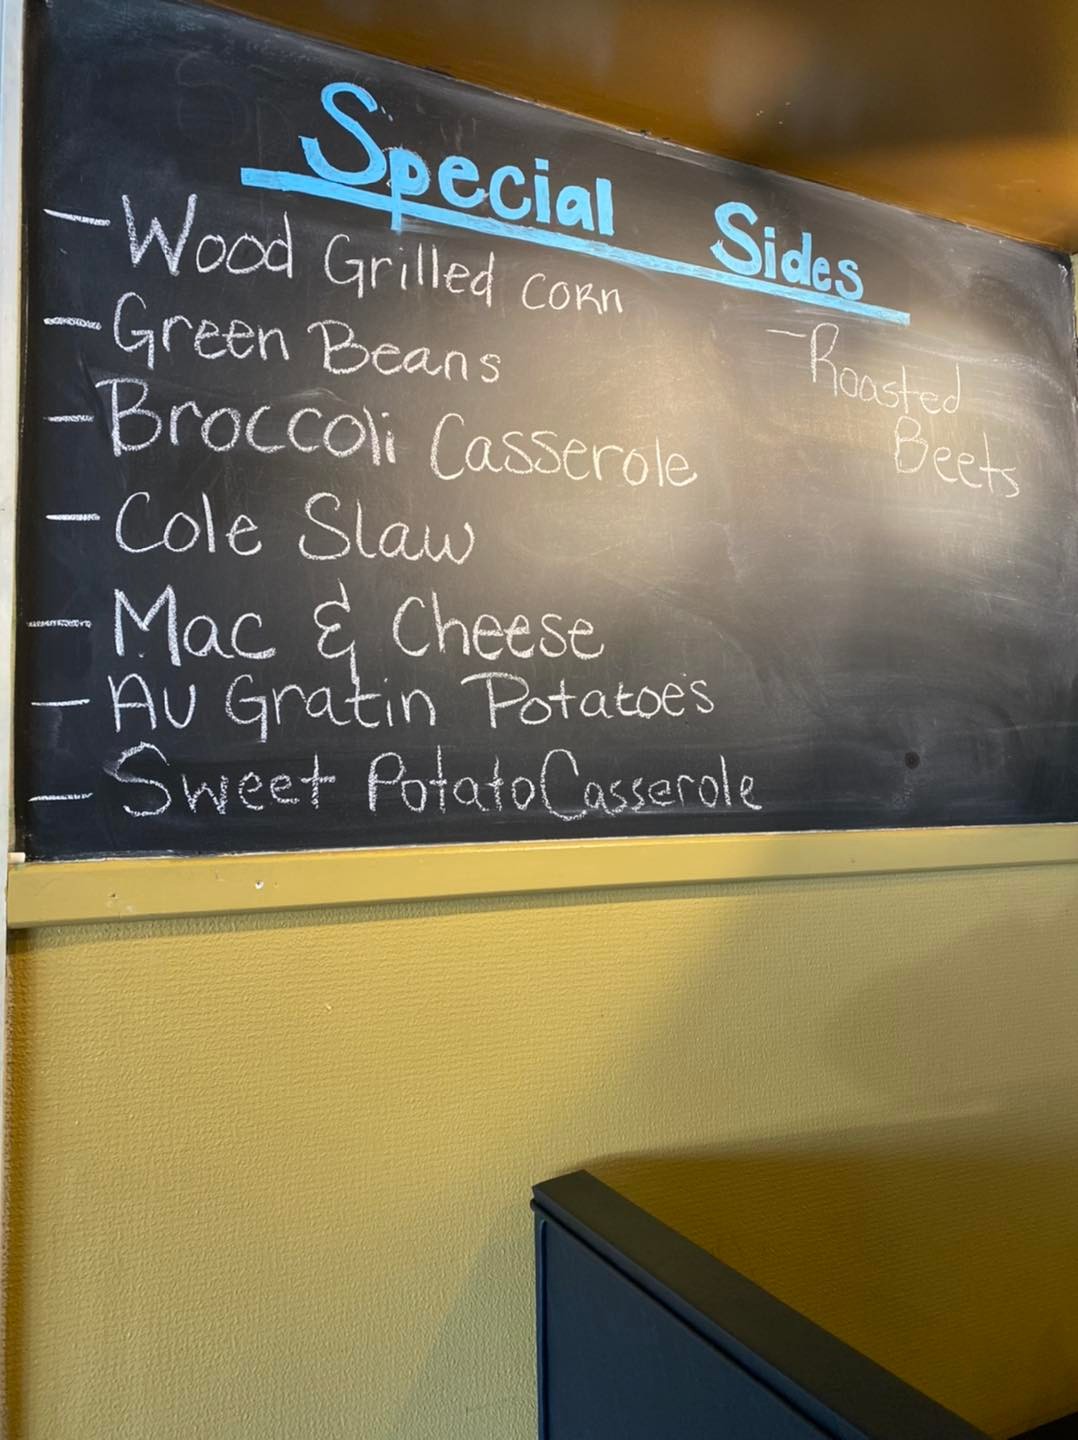 Special Sides
- Wood Grilled corn
- Green Beans
- Broccoli Casserole
- Cole Slaw
- Mac & Cheese
- Au Gratin Potatoes
- Sweet Potato Casserole
- Roasted
Beets